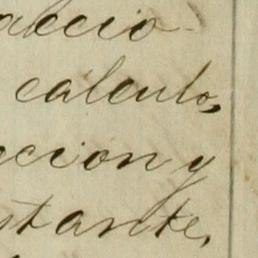 accio
calculo,
ccion y
stante,